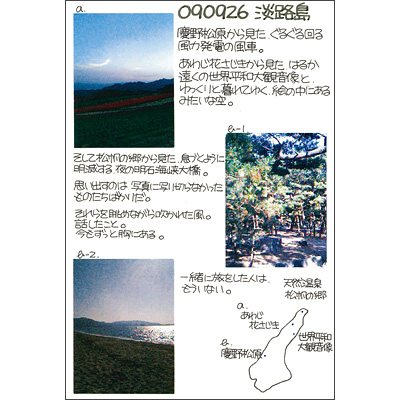 a.
090926 淡路島
慶野松原から見た ぐるぐる回る
風力発電の風車。
あわじ花さじきから見た はるか
遠くの世界平和大観音像と、
ゆっくりと暮れてゆく、絵の中にある
みたいな空。
b-1.
そして松帆の郷から見た、息づくように
明滅する、夜の明石海峡大橋。
思い出すのは 写真に写りのらなかった
ものたちばかりだ。
それらを眺めながら吹かれた風。
話したこと。
今もずっと胸にある。
b-2.
一緒に旅をした人は、
もういない。
天然温泉
松帆の郷
a.
あわじ
花さじき
世界平和
大観音像
b.
慶野松原